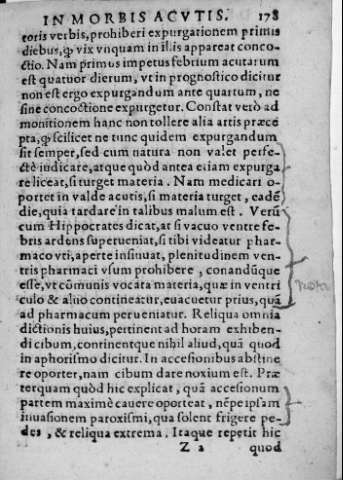 IN MORBIS ACVTIS. 178
toris verbis, prohiberi expurgationem primis
diebus, ꝙ vix vnquam in illis appareat conco-
ctio. Nam primus impetus febrium acutarum
est quatuor dierum, vt in prognostico dicitur
non est ergo expurgandum ante quartum, ne
sine concoctione expurgetur. Constat verò ad
monitionem hanc non tollere alia artis præce
pta, ꝙ scilicet ne tunc quidem expurgandum
sit semper, sed cum natura non valet perfe-
ctè iudicare, atque quòd antea etiam expurga
re liceat, si turget materia. Nam medicari o-
portet in valde acutis, si materia turget, eadē
die, quia tardare in talibus malum est. Verū
cum Hippocrates dicat, at si vacuo ventre fe-
bris ardens superueniat, si tibi videatur phar-
maco vti, aperte insinuat, plenitudinem ven-
tris pharmaci vsum prohibere, conandūque
esse, vt cōmunis vocata materia, quæ in ventri
culo & aluo contineatur, euacuetur prius, quā
ad pharmacum perueniatur. Reliqua omnia
dictionis huius, pertinent ad horam exhiben-
di cibum, continentque nihil aliud, quā quod
in aphorismo dicitur. In accessionibus abstine
re oportet, nam cibum dare noxium est. Præ
terquam quòd hic explicat, quā accesionum
partem maximè cauere oporteat, nēpe ipsam
inuasionem paroxismi, qua solent frigere pe-
des, & reliqua extrema. Itaque repetit hic
Z 2 quod
nota